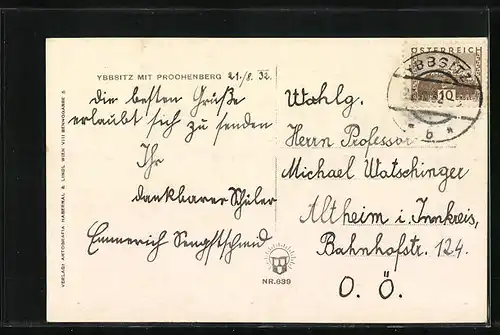 YBBSITZ MIT PROCHENBERG 21./8. 32.
Die besten Grüße
erlaubt sich zu senden
Ihr
dankbarer Schüler
Emmerich
VERLAG: ARTOGRAFIA HABERMAL & LINDL WIEN VIII BENNOGASSE 5.
ÖSTERREICH
10
YBBSITZ
* b *
Wohlg.
Herrn Professor
Michael Watschinger
Altheim i. Innkreis,
Bahnhofstr. 124.
O. Ö.
NR. 639